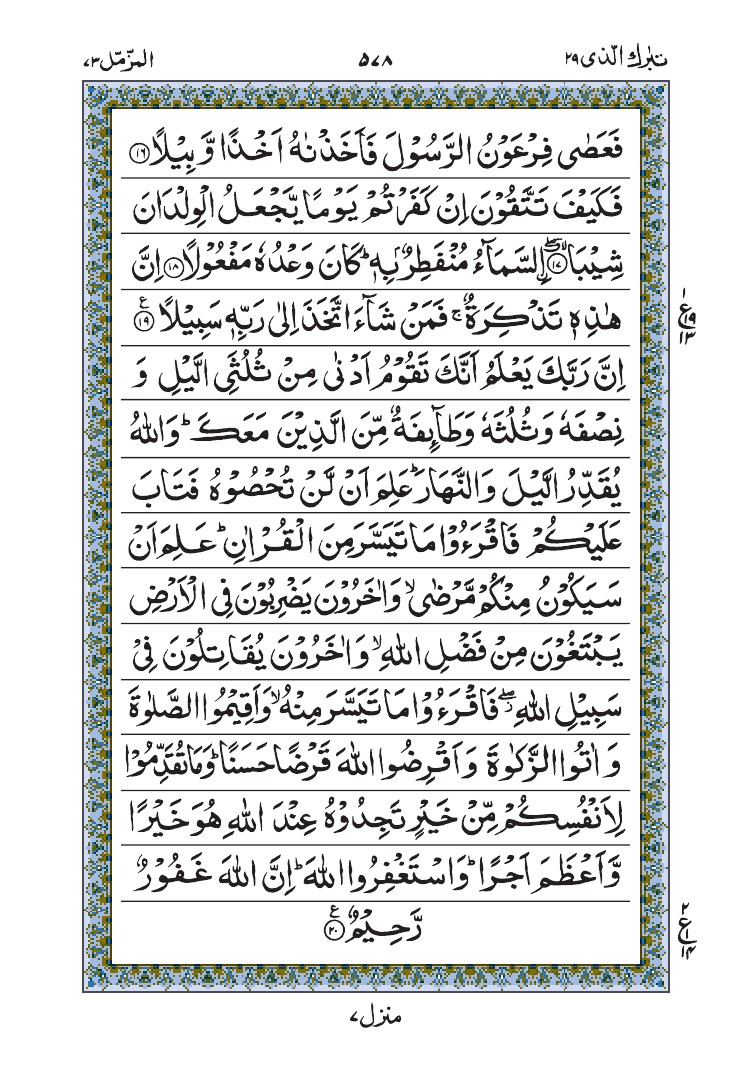 تبٰرك الّذى ٢٩ ۵۷۸ المزّمّل ٧٣
فَعَصٰى فِرْعَوْنُ الرَّسُوْلَ فَاَخَذْنٰهُ اَخْذًا وَّبِيْلًا ١٦
فَكَيْفَ تَتَّقُوْنَ اِنْ كَفَرْتُمْ يَوْمًا يَّجْعَلُ الْوِلْدَانَ
شِيْبَا ۨ ١٧ ۖ السَّمَآءُ مُنْفَطِرٌۢ بِهٖ ؕ كَانَ وَعْدُهٗ مَفْعُوْلًا ١٨ اِنَّ
هٰذِهٖ تَذْكِرَةٌ ۚ فَمَنْ شَآءَ اتَّخَذَ اِلٰى رَبِّهٖ سَبِيْلًا ١٩ ع
١ ع ١٩ ١٣
اِنَّ رَبَّكَ يَعْلَمُ اَنَّكَ تَقُوْمُ اَدْنٰى مِنْ ثُلُثَىِ الَّيْلِ وَ
نِصْفَهٗ وَثُلُثَهٗ وَطَآىِٕفَةٌ مِّنَ الَّذِيْنَ مَعَكَ ؕ وَاللّٰهُ
يُقَدِّرُ الَّيْلَ وَالنَّهَارَ ؕ عَلِمَ اَنْ لَّنْ تُحْصُوْهُ فَتَابَ
عَلَيْكُمْ فَاقْرَءُوْا مَا تَيَسَّرَ مِنَ الْقُرْاٰنِ ؕ عَلِمَ اَنْ
سَيَكُوْنُ مِنْكُمْ مَّرْضٰى ۙ وَاٰخَرُوْنَ يَضْرِبُوْنَ فِى الْاَرْضِ
يَبْتَغُوْنَ مِنْ فَضْلِ اللّٰهِ ۙ وَاٰخَرُوْنَ يُقَاتِلُوْنَ فِىْ
سَبِيْلِ اللّٰهِ ۖ فَاقْرَءُوْا مَا تَيَسَّرَ مِنْهُ ۙ وَاَقِيْمُوا الصَّلٰوةَ
وَ اٰتُوا الزَّكٰوةَ وَاَقْرِضُوا اللّٰهَ قَرْضًا حَسَنًا ؕ وَمَا تُقَدِّمُوْا
لِاَنْفُسِكُمْ مِّنْ خَيْرٍ تَجِدُوْهُ عِنْدَ اللّٰهِ هُوَ خَيْرًا
وَّاَعْظَمَ اَجْرًا ؕ وَاسْتَغْفِرُوا اللّٰهَ ؕ اِنَّ اللّٰهَ غَفُوْرٌ
رَّحِيْمٌ ٢٠ ع
٢ ع ١ ١٤
منزل ٧